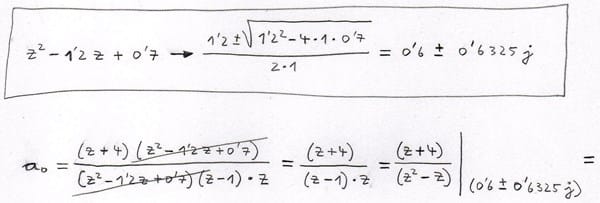 z² - 1'2 z + 0'7 → (1'2 ± √(1'2² - 4·1·0'7)) / (2·1) = 0'6 ± 0'6325 j
a₀ = ((z+4) (z² - 1'2z + 0'7)) / ((z² - 1'2z + 0'7) (z-1)·z) = (z+4) / ((z-1)·z) = (z+4) / (z² - z) | (0'6 ± 0'6325 j) =